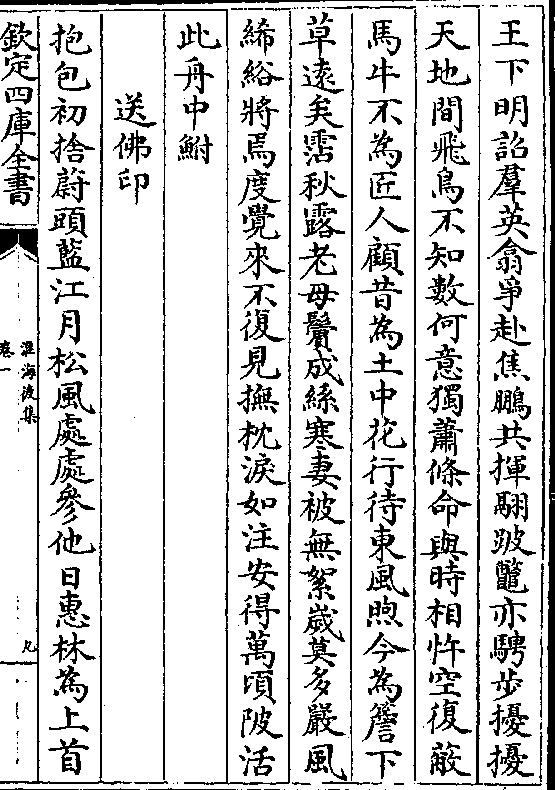 王下明詔羣英翕爭赴焦鵬共揮翮跛鼈亦騁步擾擾
天地間飛鳥不知數何意獨蕭條命與時相忤空復蔽
馬牛不為匠人顧昔為土中花行待東風煦今為簷下
草遠矣霑秋露老母鬢成絲寒妻被無絮嵗莫多嚴風
絺綌將焉度覺來不復見撫枕淚如注安得萬頃陂活
此舟中鮒
送佛印
抱包初捨蔚頭藍江月松風處處參他日惠林為上首
欽定四庫全書
淮海後集
卷一
九